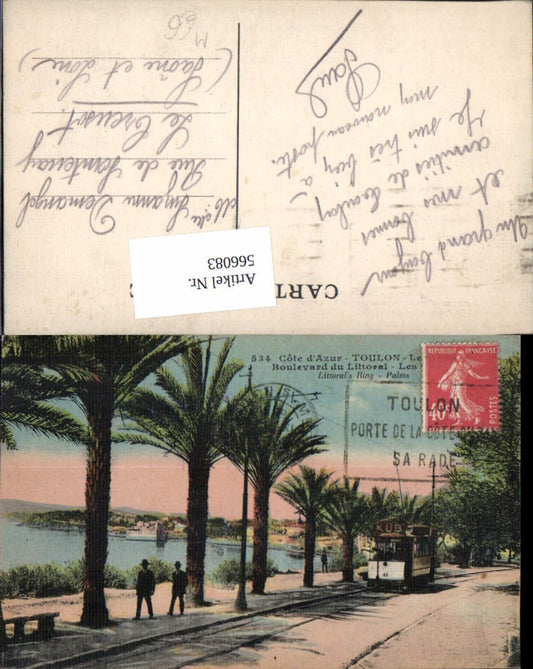 Un grand bonjour
et mes bonnes
amitiés de Toulon,
Je suis très bien a
mon nouveau poste.
Paul
Melle Suzanne Demangel
Rue de Santenay
Le Creusot.
(Saône et Loire)
CART
Artikel Nr.
566083
534 Côte d'Azur - TOULON - Le
Boulevard du Littoral - Les
Littoral's Ring - Palms
REPUBLIQUE FRANÇAISE
40c
POSTES
TOULON
PORTE DE LA CÔTE D'AZUR
SA RADE
KUB
45